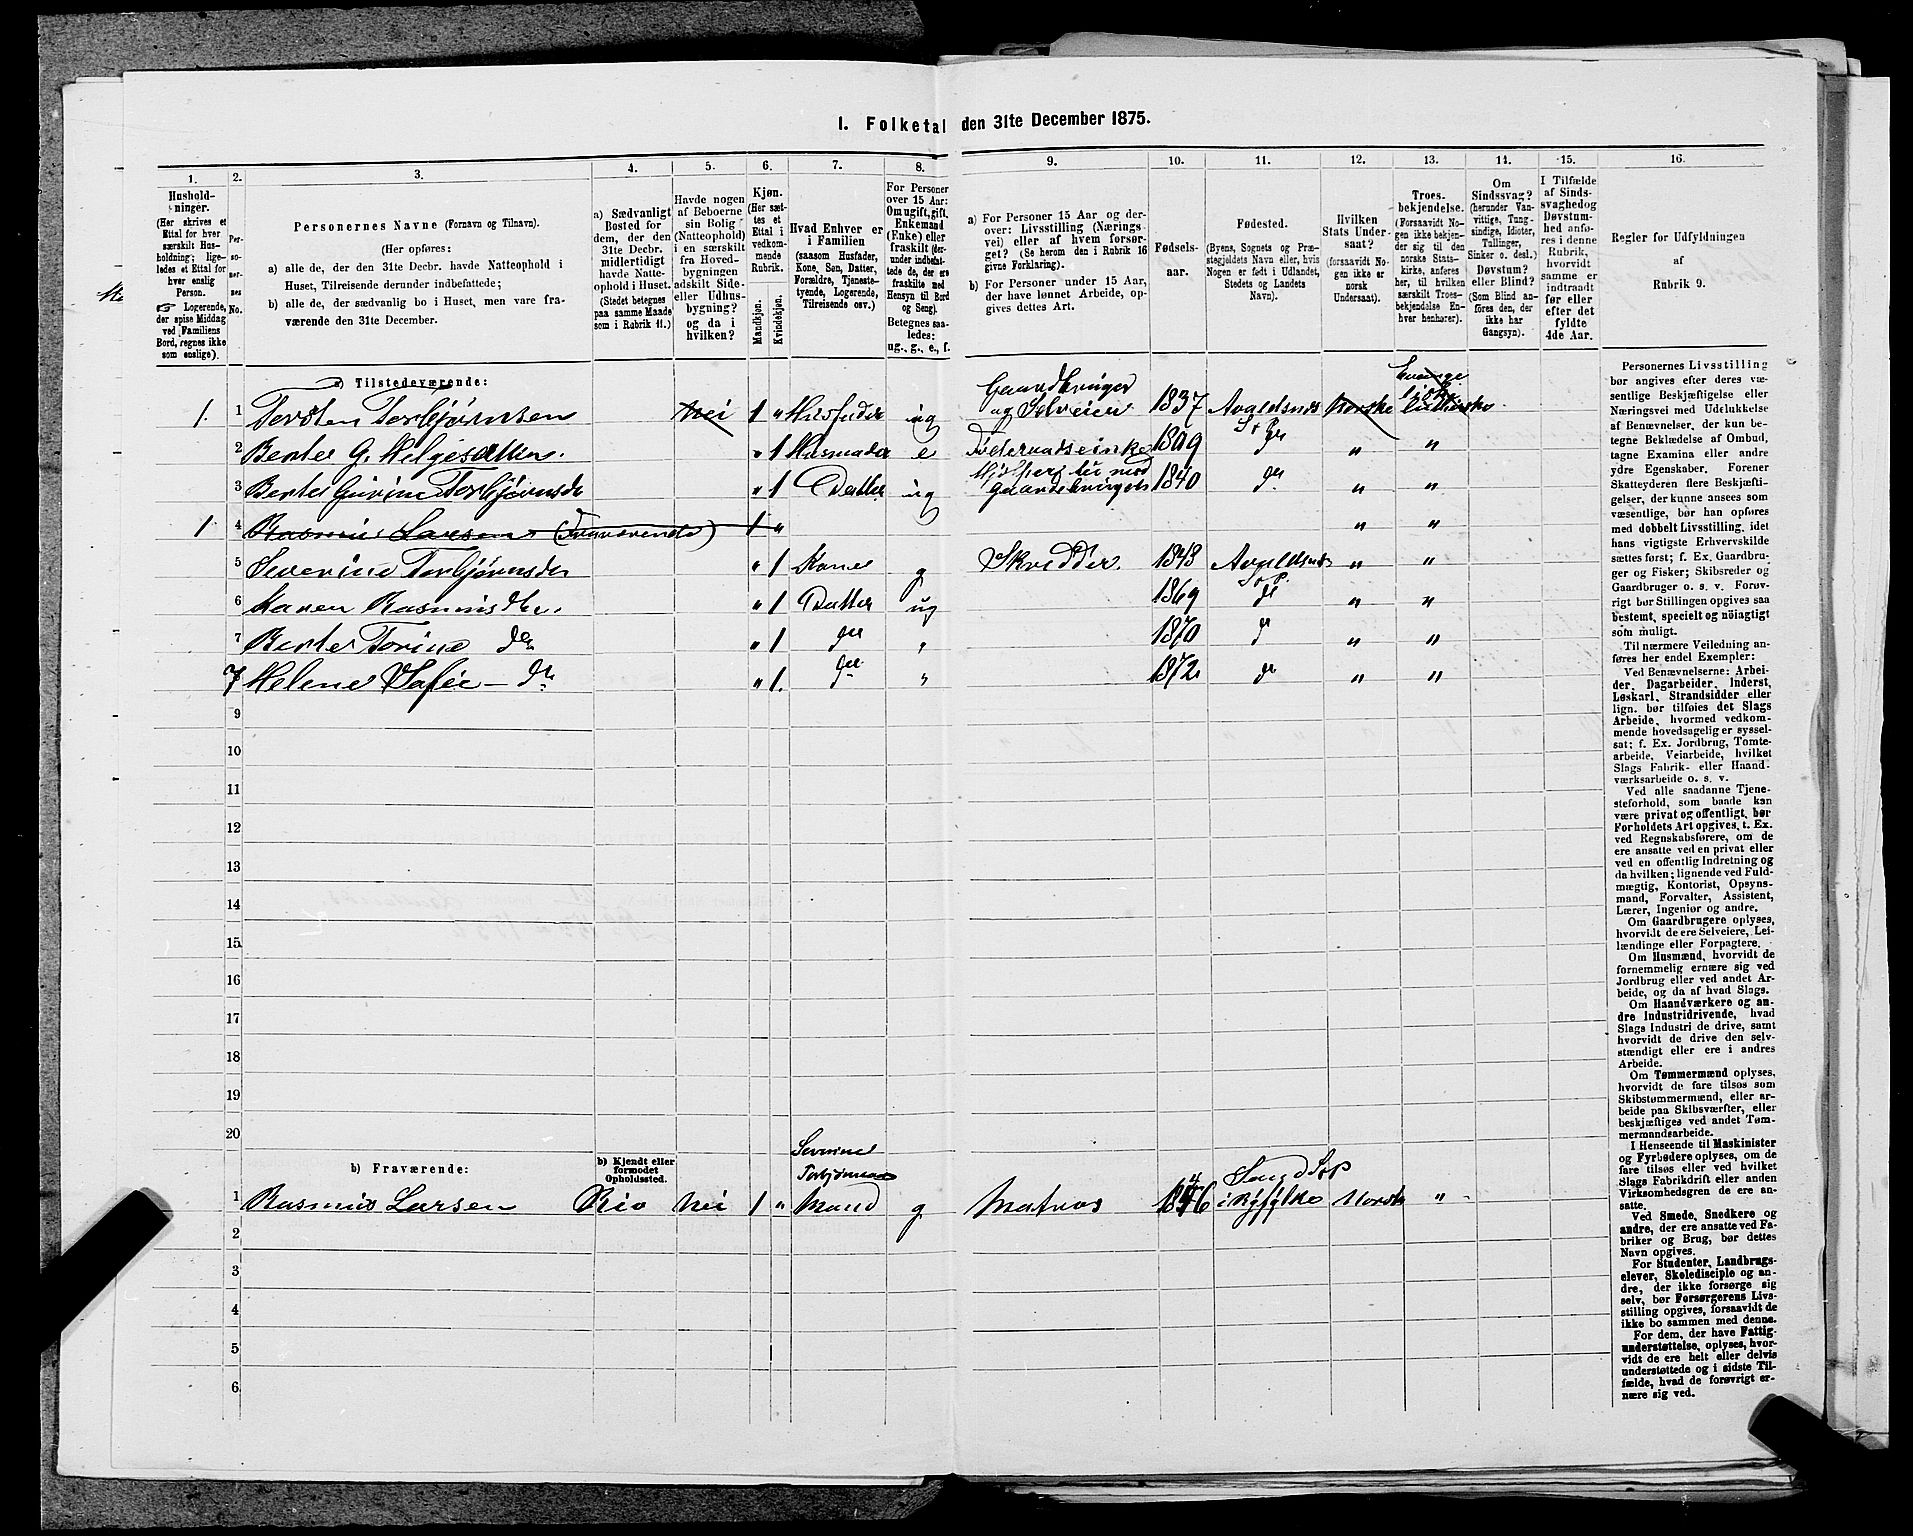 I. Folketal den 31te December 1875.
1. 2. 3. 4. 5. 6. 7. 8. 9. 10. 11. 12. 13. 14. 15. 16.
Hushold-
ninger.
(Her skrives et
Ettal for hver
særskilt Hus-
holdning; lige-
ledes et Ettal for
hver enslig
Person.
☞ Logerende,
der spise Middag
ved Familiens
Bord, regnes ikke
som enslige).
Per-
so-
ner-
nes
No.
Personernes Navne (Fornavn og Tilnavn).
(Her opføres:
a) alle de, der den 31te Decbr. havde Natteophold i
Huset, Tilreisende derunder indbefattede;
b) alle de, der sædvanlig bo i Huset, men vare fra-
værende den 31te December.
a) Sædvanligt
Bosted for
dem, der den
31te Decbr.
midlertidigt
havde Natte-
ophold i Huset.
(Stedet betegnes
paa samme Maade
som i Rubrik 11.)
Havde nogen
af Beboerne
sin Bolig
(Natteophold)
i en særskilt
fra Hoved-
bygningen
adskilt Side-
eller Udhus-
bygning?
og da i
hvilken?
Kjøn.
(Her sæt-
tes et
Ettal i
vedkom-
mende
Rubrik.
Mandkjøn.
Kvindekjøn.
Hvad Enhver er
i Familien
(saasom Husfader,
Kone, Søn, Datter,
Forældre, Tjeneste-
tyende, Logerende,
Tilreisende osv.)
For Personer
over 15 Aar:
Om ugift, gift,
Enkemand
(Enke) eller
fraskilt (der-
under indbefat-
tede de, der ere
fraskilte med
Hensyn til Bord
og Seng).
Betegnes saa-
ledes:
ug., g., e., f.
a) For Personer 15 Aar og der-
over: Livsstilling (Nærings-
vei) eller af hvem forsør-
get? (Se herom den i Rubrik 16
givne Forklaring).
b) For Personer under 15 Aar,
der have lønnet Arbeide, op-
gives dettes Art.
Fødsels-
aar.
Fødested.
(Byens, Sognets og Præ-
stegjeldets Navn eller, hvis
Nogen er født i Udlandet,
Stedets og Landets
Navn).
Hvilken
Stats Under-
saat?
(forsaavidt No-
gen ikke er
norsk
Undersaat).
Troes-
bekjendelse.
(Forsaavidt No-
gen ikke bekjen-
der sig til den
norske Stats-
kirke, anføres
her, til hvilken
særskilt Troes-
bekjendelse En-
hver henhører).
Om
Sindssvag?
(herunder Van-
vittige, Tung-
sindige, Idioter,
Tullinger,
Sinker o. desl.)
Døvstum?
eller Blind?
(Som Blind an-
føres den, der
ikke har
Gangsyn).
I Tilfælde
af Sinds-
svaghed og
Døvstum-
hed anfø-
res i denne
Rubrik,
hvorvidt
samme er
indtraadt
før eller
efter det
fyldte
4de Aar.
Regler for Udfyldningen
af
Rubrik 9.
a) Tilstedeværende:
1. 1 Torsten Torbjørnsen nei 1 " Husfader ug Gaardbruger og Selveier 1837 Avaldsnes S. P. Norske Evangelisk lutherske
2 Berter G. Helgesdtter. " 1 Husmoder e Føderaadsenke 1809 do " "
3 Berter Gurine Torbjørnsdr " 1 Datter ug Hjelper til med Gaardsbruget 1840 do " "
1 4 Rasmus Larsen (Fraværende) 1 " " "
5 Severine Torbjørnsdr " 1 Kone g Skredder. 1848 Avaldsnes S. P. " "
6 Karen Rasmusdtr. " 1 Datter ug 1869 do " "
7 Berter Torine do " 1 do " 1870 do " "
7 Helene Sofie - do " 1. do " 1872 do " "
9
10
11
12
13
14
15
16
17
18
19
20
b) Fraværende:
b) Kjendt eller
formodet
Opholdssted.
1 Rasmus Larsen Rio nei 1 " Severine Torbjørnsen Mand g Matros 1846 Sand S. P. i Ryfylke Norsk "
2
3
4
5
6
Personernes Livsstilling
bør angives efter deres væ-
sentlige Beskjæftigelse eller
Næringsvei med Udelukkelse
af Benævnelser, der kun be-
tegne Beklædelse af Ombud,
tagne Examina eller andre
ydre Egenskaber. Forener
Skatteyderen flere Beskjæfti-
gelser, der kunne ansees som
væsentlige, bør han opføres
med dobbelt Livsstilling, idet
hans vigtigste Erhvervskilde
sættes først; f. Ex. Gaardbru-
ger og Fisker; Skibsreder og
Gaardbruger o. s. v. Forøv-
rigt bør Stillingen opgives saa
bestemt, specielt og nöiagtigt
som muligt.
Til nærmere Veiledning an-
føres her endel Exempler:
Ved Benævnelserne: Arbei-
der, Dagarbeider, Inderst,
Løskarl, Strandsidder eller
lign. bør tilføies det Slags
Arbeide, hvormed vedkom-
mende hovedsagelig er syssel-
sat; f. Ex. Jordbrug, Tomte-
arbeide, Veiarbeide, hvilket
Slags Fabrik- eller Haand-
værksarbeide o. s. v.
Ved alle saadanne Tjene-
steforhold, som baade kan
være privat og offentligt, bør
Forholdets Art opgives, t. Ex.
ved Regnskabsførere, om de
ere ansatte ved en privat eller
ved en offentlig Indretning og
da hvilken; lignende ved Fuld-
mægtig, Kontorist, Opsyns-
mand, Forvalter, Assistent,
Lærer, Ingeniør og andre.
Om Gaardbrugere oplyses,
hvorvidt de ere Selveiere, Lei-
lændinge eller Forpagtere.
Om Husmænd, hvorvidt de
fornemmelig ernære sig ved
Jordbrug eller ved andet Ar-
beide, og da af hvad Slags.
Om Haandværkere og an-
dre Industridrivende, hvad
Slags Industri de drive, samt
hvorvidt de drive den selv-
stændigt eller ere i andres
Arbeide.
Om Tømmermænd oplyses,
hvorvidt de fare tilsøs som
Skibstømmermænd, eller ar-
beide paa Skibsværfter, eller
beskjæftiges ved andet Tøm-
mermandsarbeide.
I Henseende til Maskinister
og Fyrbødere oplyses, om de
fare tilsøs eller ved hvilket
Slags Fabrikdrift eller anden
Virksomhedsgren de ere an-
satte.
Ved Smede, Snedkere og
andre, der ere ansatte ved Fa-
briker og Brug, bør dettes
Navn opgives.
For Studenter, Landbrugs-
elever, Skoledisciple og an-
dre, der ikke forsørge sig
selv, bør Forsørgerens Livs-
stilling opgives, forsaavidt de
ikke bo sammen med denne.
For dem, der have Fattig-
understøttelse, oplyses, hvor-
vidt de ere helt eller delvis
understøttede og i sidste Til-
fælde, hvad de forøvrigt er-
nære sig ved.